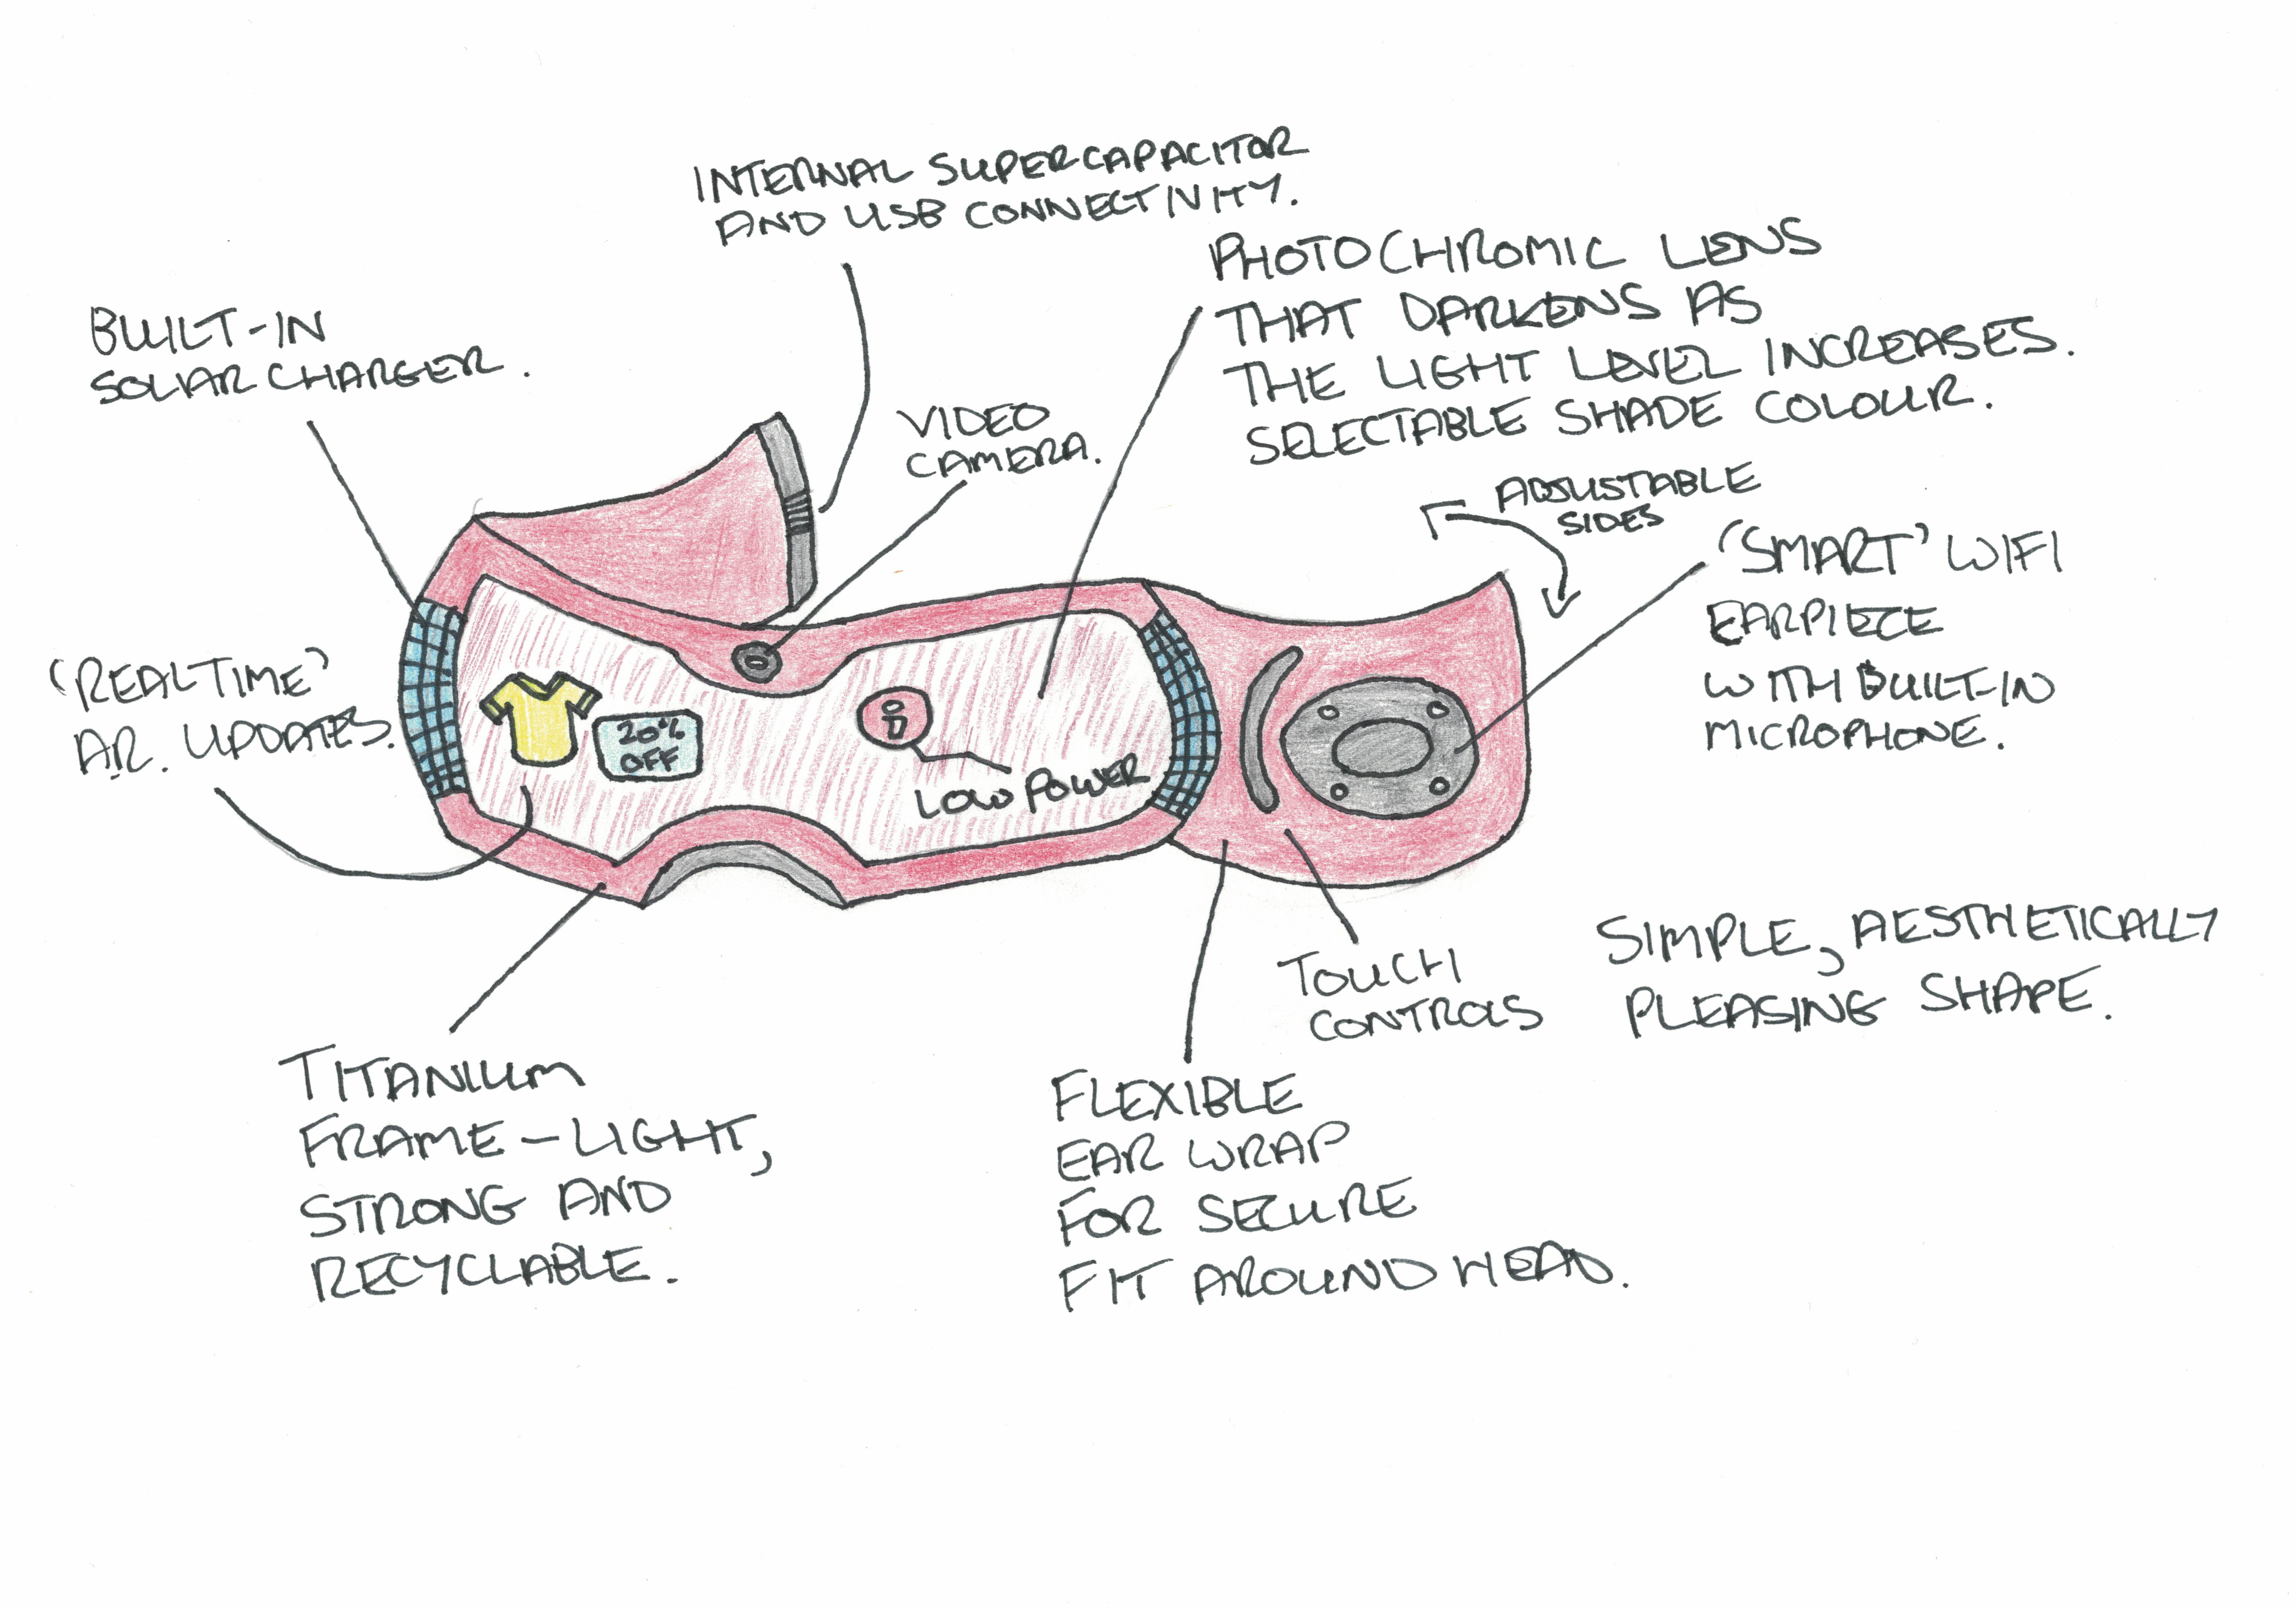 INTERNAL SUPERCAPACITOR
AND USB CONNECTIVITY.
PHOTOCHROMIC LENS
THAT DARKENS AS
THE LIGHT LEVEL INCREASES.
SELECTABLE SHADE COLOUR.
BUILT-IN
SOLAR CHARGER.
VIDEO
CAMERA.
ADJUSTABLE
SIDES
'SMART' WIFI
EARPIECE
WITH BUILT-IN
MICROPHONE.
'REALTIME'
A.R. UPDATES.
20%
OFF
i
LOW POWER
SIMPLE, AESTHETICALLY
PLEASING SHAPE.
TOUCH
CONTROLS
TITANIUM
FRAME - LIGHT,
STRONG AND
RECYCLABLE.
FLEXIBLE
EAR WRAP
FOR SECURE
FIT AROUND HEAD.